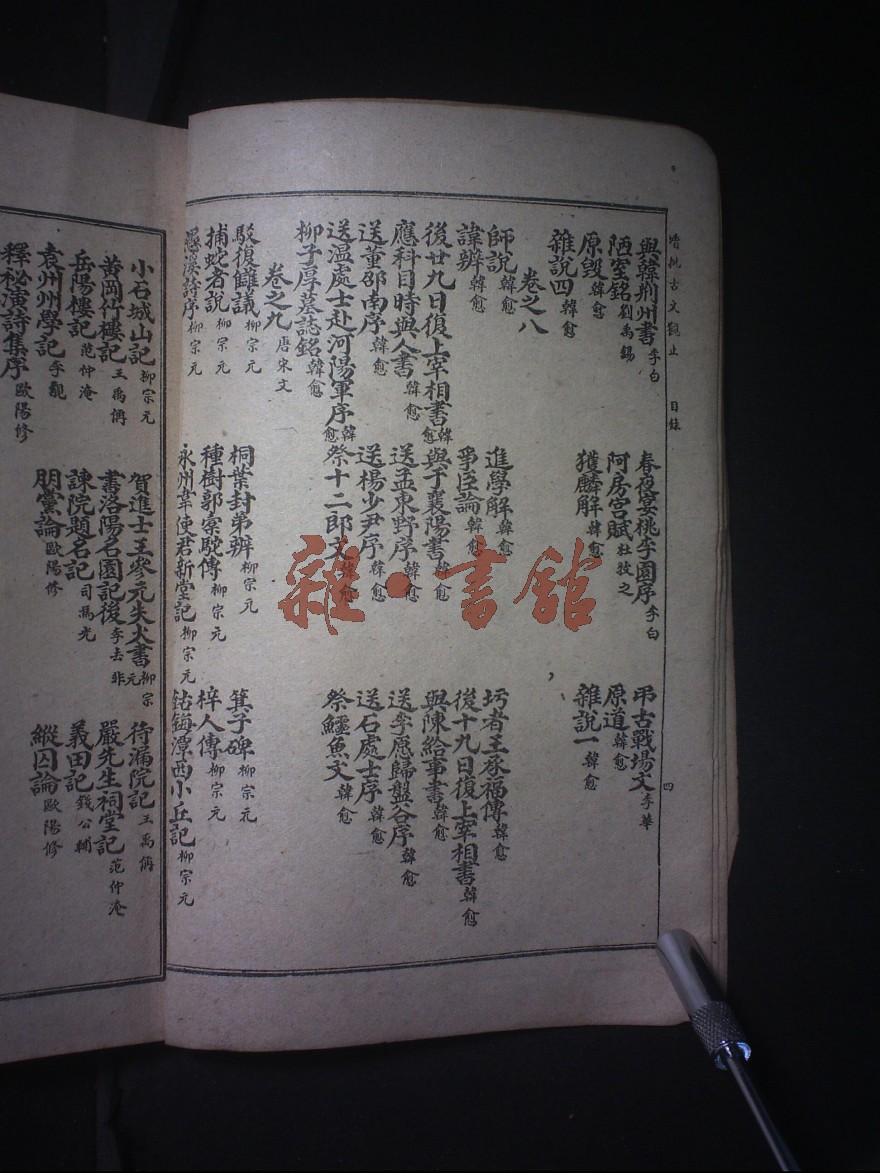 增批古文觀止 目錄 四
與韓荊州書 李白 春夜宴桃李園序 李白 弔古戰場文 李華
陋室銘 劉禹錫 阿房宮賦 杜牧之 原道 韓愈
原毀 韓愈 獲麟解 韓愈 雜說一 韓愈
雜說四 韓愈
卷之八
師說 韓愈 進學解 韓愈 圬者王承福傳 韓愈
諱辨 韓愈 爭臣論 韓愈 後十九日復上宰相書 韓愈
後廿九日復上宰相書 韓愈 與于襄陽書 韓愈 與陳給事書 韓愈
應科目時與人書 韓愈 送孟東野序 韓愈 送李愿歸盤谷序 韓愈
送董邵南序 韓愈 送楊少尹序 韓愈 送石處士序 韓愈
送溫處士赴河陽軍序 韓愈 祭十二郎文 韓愈 祭鱷魚文 韓愈
柳子厚墓誌銘 韓愈
卷之九 唐宋文
駁復讎議 柳宗元 桐葉封弟辨 柳宗元 箕子碑 柳宗元
捕蛇者說 柳宗元 種樹郭橐駝傳 柳宗元 梓人傳 柳宗元
愚溪詩序 柳宗元 永州韋使君新堂記 柳宗元 鈷鉧潭西小丘記 柳宗元
小石城山記 柳宗元 賀進士王參元失火書 柳宗元 待漏院記 王禹偁
黃岡竹樓記 王禹偁 書洛陽名園記後 李去非 嚴先生祠堂記 范仲淹
岳陽樓記 范仲淹 諫院題名記 司馬光 義田記 錢公輔
袁州州學記 李覯 朋黨論 歐陽修 縱囚論 歐陽修
釋祕演詩集序 歐陽修
雜·書館